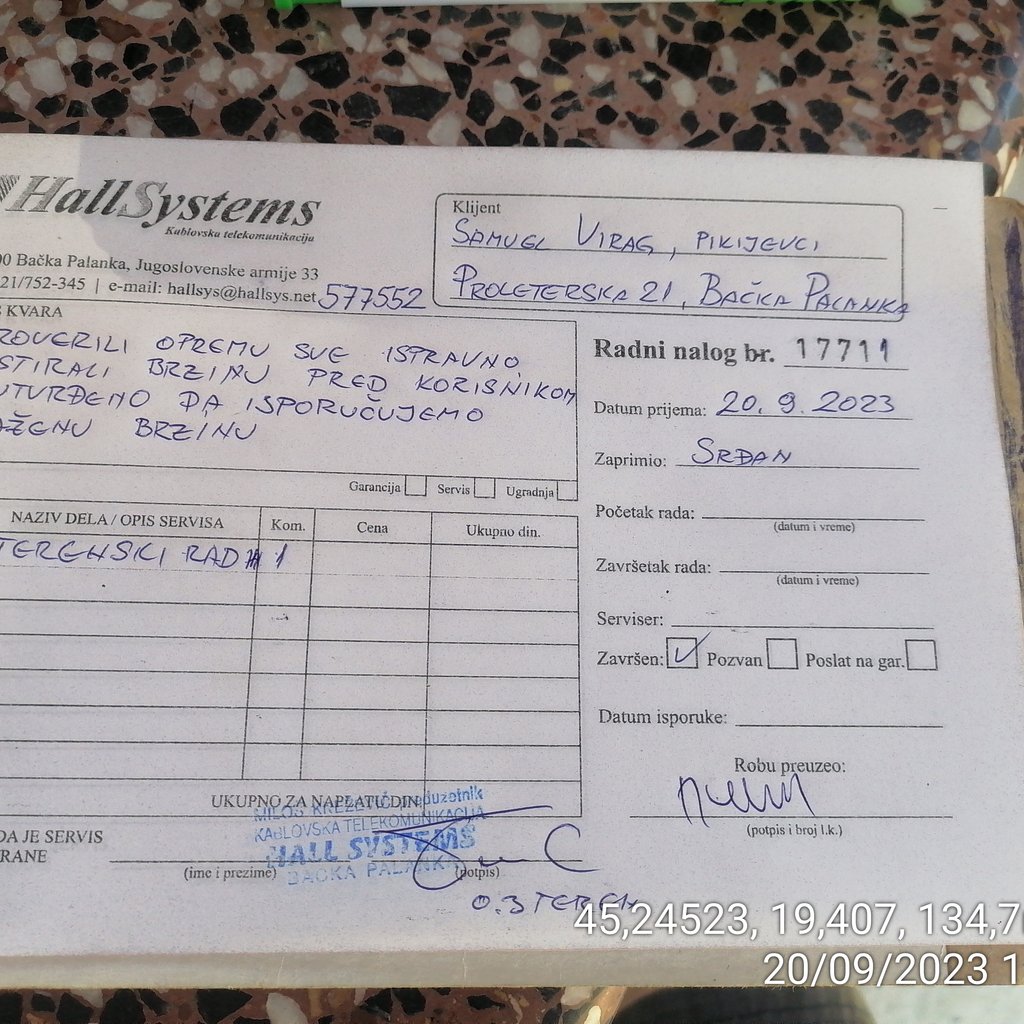 HallSystems
Kablovska telekomunikacija
00 Bačka Palanka, Jugoslovenske armije 33
21/752-345 | e-mail: hallsys@hallsys.net
577552
Klijent
SAMUEL VIRAG, PIKIJEVCI
PROLETERSKA 21, BAČKA PALANKA
KVARA
ROVERILI OPREMU SVE ISPRAVNO,
STIRALI BRZINU PRED KORISNIKOM
UTVRĐENO DA ISPORUČUJEMO
AŽENU BRZINU
Garancija Servis Ugradnja
Radni nalog br. 17711
Datum prijema: 20.9.2023
Zaprimio: SRĐAN
Početak rada:
(datum i vreme)
Završetak rada:
(datum i vreme)
Serviser:
Završen: Pozvan Poslat na gar.
Datum isporuke:
Robu preuzeo:
(potpis i broj l.k.)
NAZIV DELA / OPIS SERVISA Kom. Cena Ukupno din.
TERENSKI RAD 1
UKUPNO ZA NAPLATU DIN.
MILOŠ KREZETIĆ preduzetnik
KABLOVSKA TELEKOMUNIKACIJA
HALL SYSTEMS
BAČKA PALANKA
DA JE SERVIS
RANE
(ime i prezime) (potpis)
O.3 TEREN
45,24523, 19,407, 134,7
20/09/2023 1